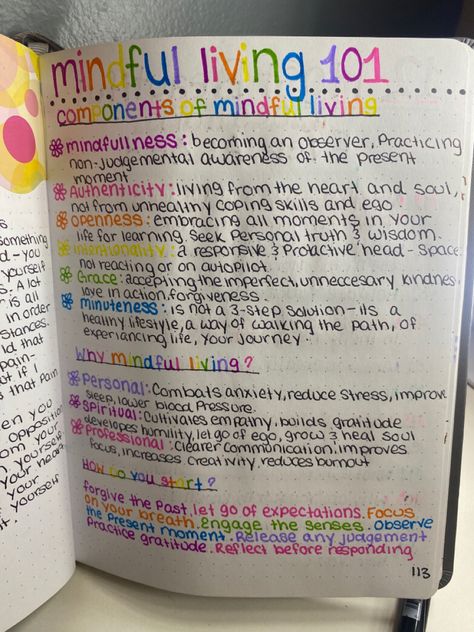 mindful living 101
components of mindful living
mindfullness: becoming an observer, Practicing
non-judgemental awareness of the present
moment
Authenticity: living from the heart and soul,
not from unhealthy coping skills and ego.
openness: embracing all moments in your
life for learning. Seek Personal truth & wisdom.
intentionality: a responsive & Proactive head-space
not reacting or on autopilot.
Grace: accepting the imperfect, unneccesary kindness
love in action. forgiveness.
minuteness: is not a 3-step solution-its a
healthy lifestyle, a way of walking the path, of
experiancing life, your journey.
Why mindful living?
Personal: Combats anxiety, reduce stress, improve
sleep, lower blood Pressure.
Spiritual: Cultivates empathy, builds gratitude
developes humility, let go of ego, grow & heal soul
Professional: clearer communication. improves
focus, increases creativity, reduces burnout
How do you start?
forgive the Past, let go of expectations. Focus
on your breath. Engage the senses. Observe
the Present moment. Release any judgement
Practice gratitude. Reflect before responding
113
something
d-you
yourself
s. A lot
is all
in order
stances.
ld that
pain-
ot if I
s that pain
en you
opposition
om your
yourself
your heart
your
yourself
t.